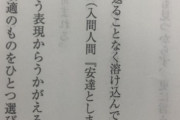 返ることなく溶け込んで
（入間人間『安達としま
う表現からうかがえる
適のものをひとつ選び